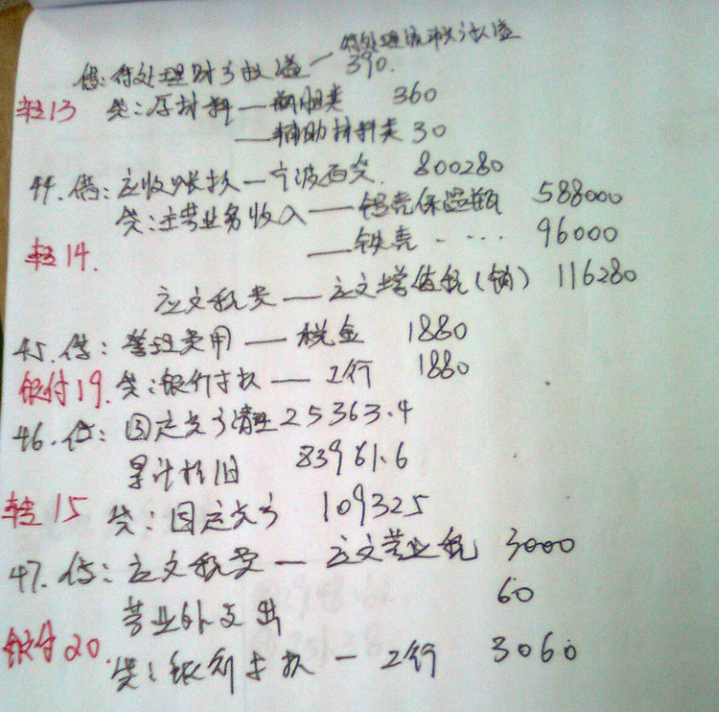 待处理流动资产损溢
借:待处理财产损溢一 390.
转13 贷:原材料—瓶胆类 360
—辅助材料类 30
44.借:应收账款—宁波百货. 800280
贷:主营业务收入——铝壳保温瓶 588000
转14. ——铁壳 - ···· 96000
应交税费—应交增值税(销) 116280
45.借:管理费用——税金 1880
银付19.贷:银行存款——工行 1880
46.借:固定资产清理25363.4
累计折旧 83961.6
转15 贷:固定资产 109325
47.借:应交税费—应交营业税 3000
营业外支出 60
银付20.贷:银行存款—工行 3060